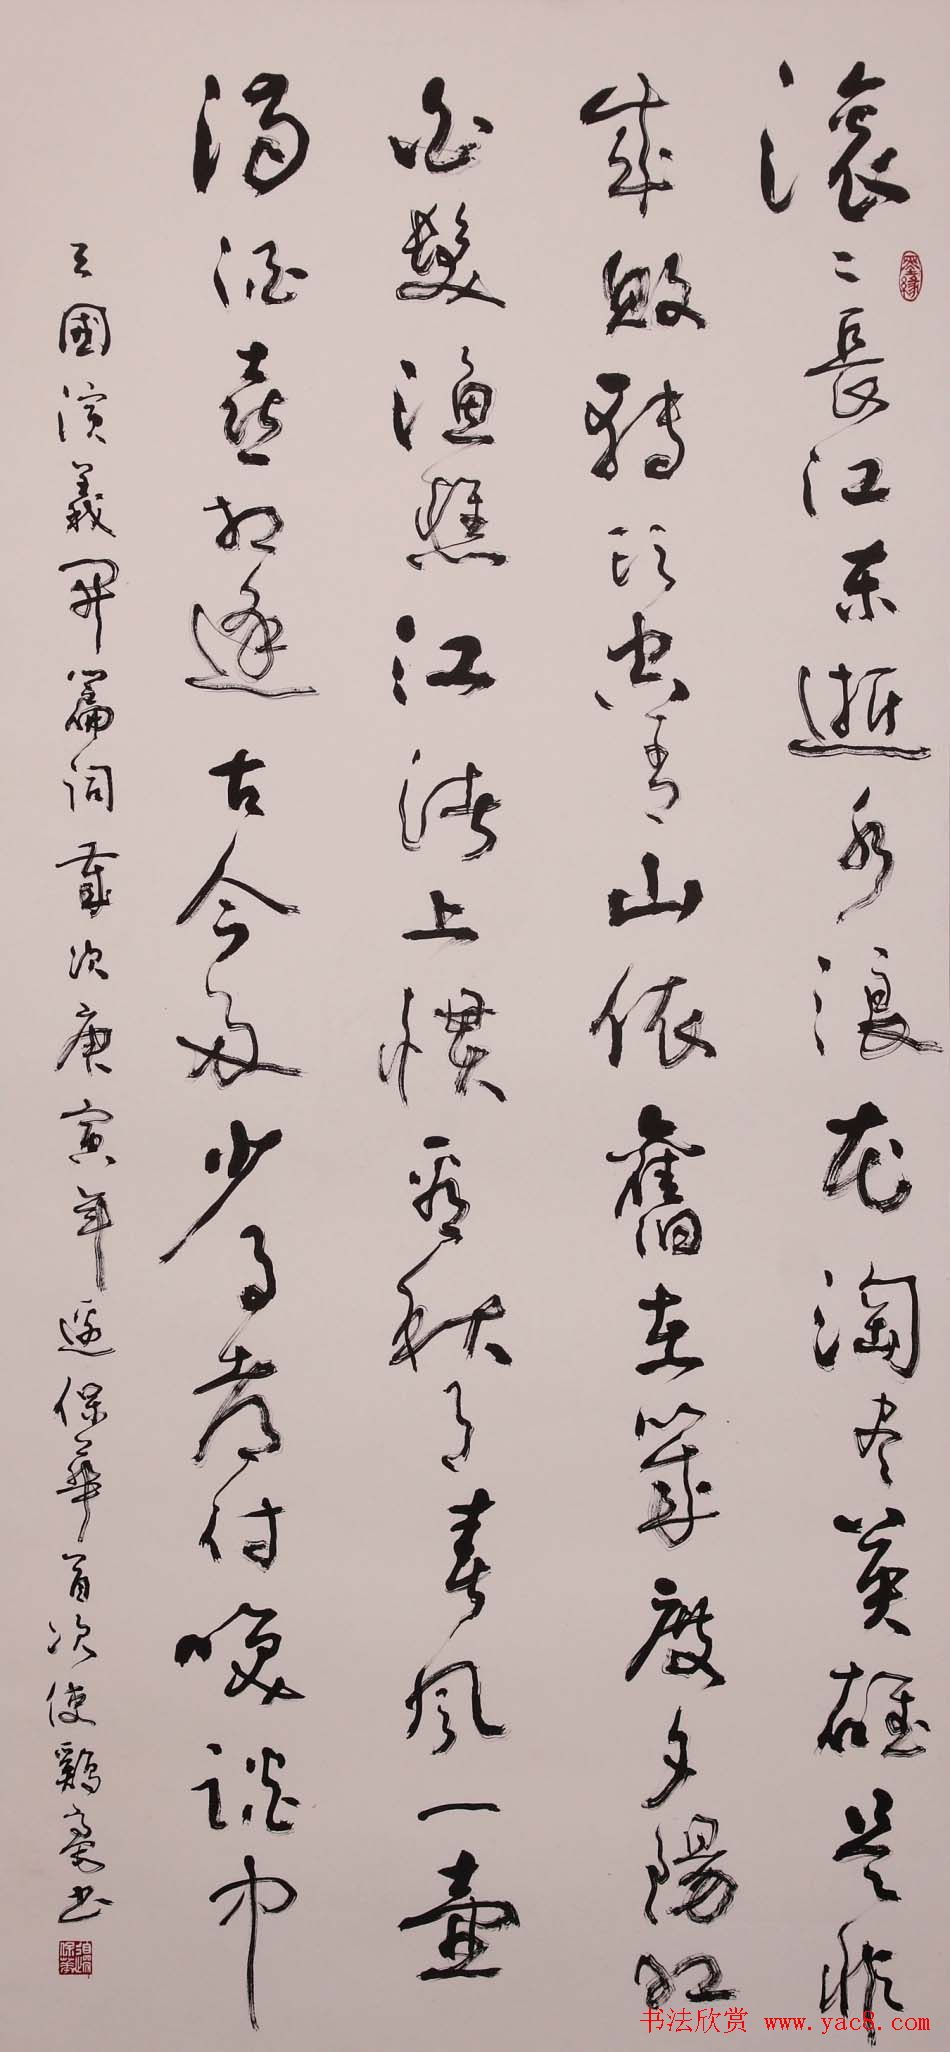 滚二長江东逝水浪花淘尽英雄是非
成敗轉頭空青山依舊在幾度夕陽红
白髮漁樵江渚上慣看秋月春風一壺
濁酒喜相逢古今多少事都付笑談中
三國演義開篇词歲次庚寅年逯保華首次使鷄毫书
书法欣赏 www.yac8.com